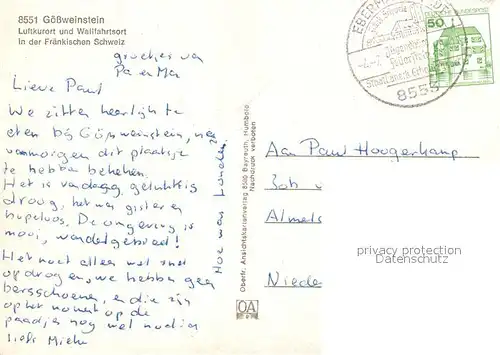 8551 Gößweinstein
Luftkurort und Wallfahrtsort
in der Fränkischen Schweiz
groetjes van
Pa en Ma
Lieve Paul
We zitten heerlijk te
eten bij Gößweinstein, na
vanmorgen dit plaatsje
te hebben bekeken.
Het is vandaag gelukkig
droog, het was gisteren
hopeloos. De omgeving is
mooi, wandelgebied!
Het moet alleen wel snel
opdrogen, we hebben geen
bergschoenen, en die zijn
op het moment op de
paadjes nog wel nodig
liefs Mieke
Hoe was Londen?
Oberfr. Ansichtskartenverlag 8580 Bayreuth, Humboldt
Nachdruck verboten
OA
EBERM
8553
50
Aan Paul Hoogerkamp
Almelo
Niede
privacy protection
Datenschutz